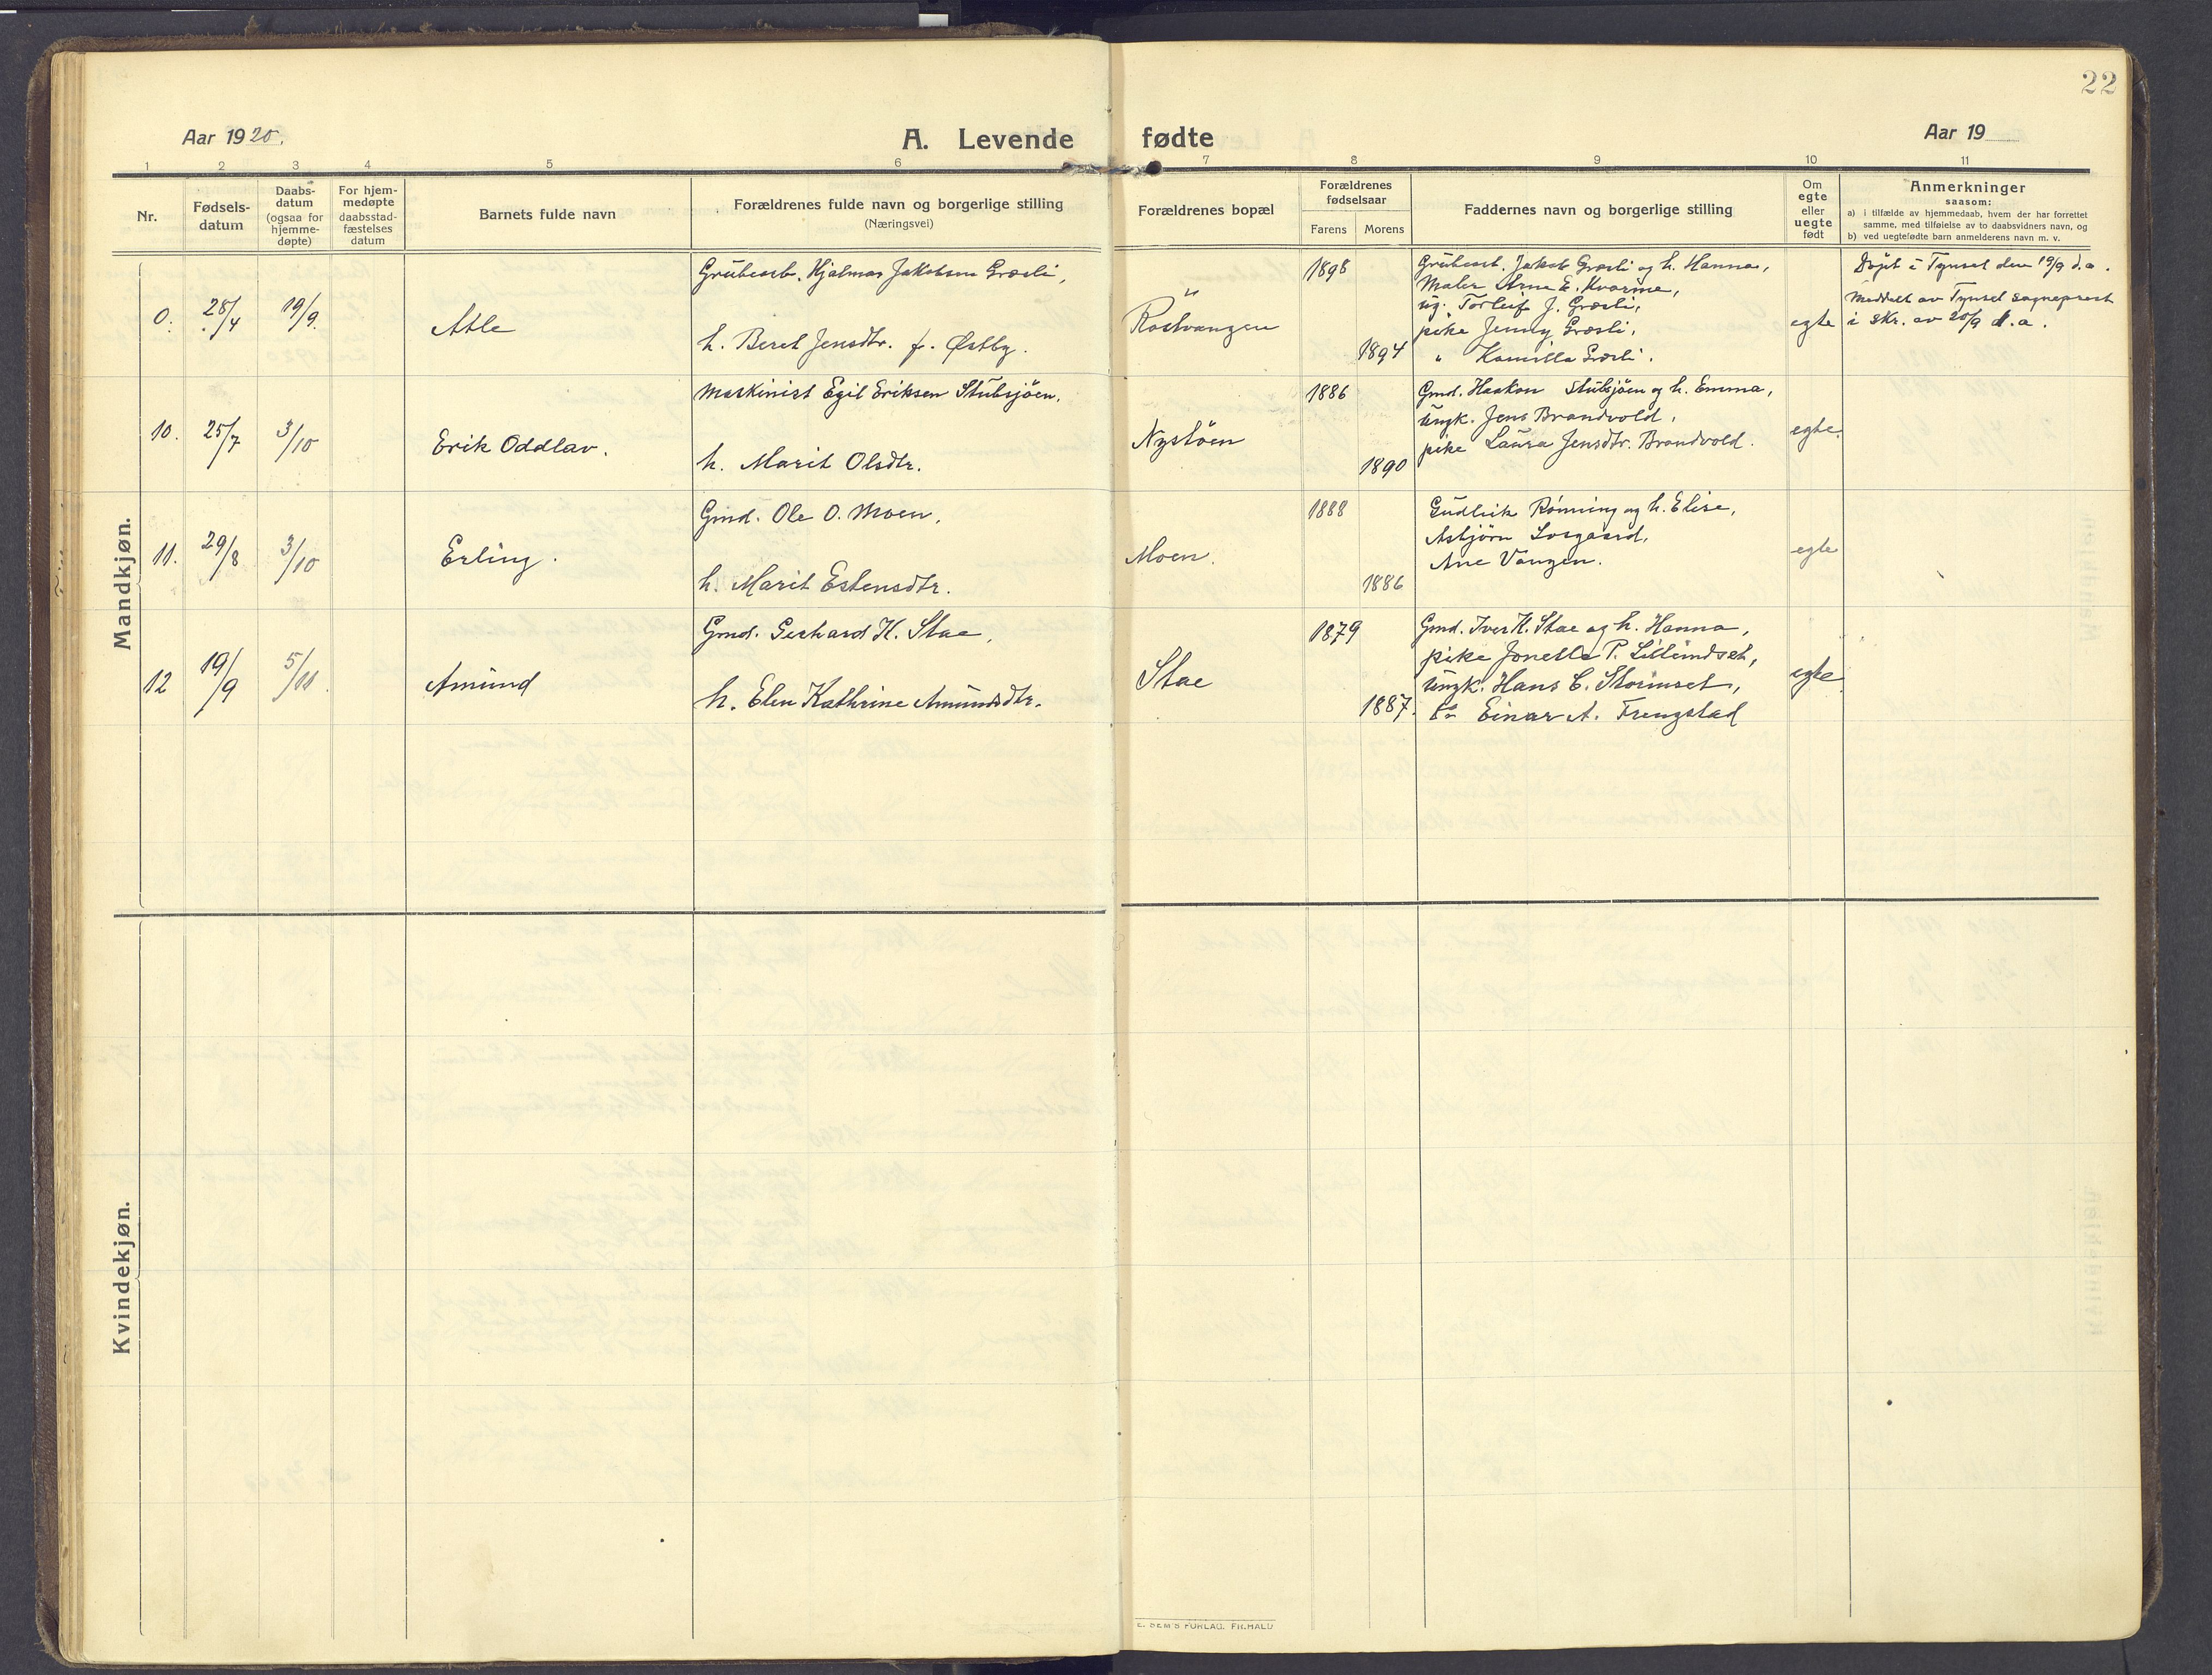 22
Aar 1920.
A. Levende fødte
Aar 19
1 2 3 4 5 6 7 8 9 10 11
Nr.
Fødsels-
datum
Daabs-
datum
(ogsaa for
hjemme-
døpte)
For hjem-
medøpte
daabsstad-
fæstelses
datum
Barnets fulde navn
Forældrenes fulde navn og borgerlige stilling
(Næringsvei)
Forældrenes bopæl
Forældrenes
fødselsaar
Farens Morens
Faddernes navn og borgerlige stilling
Om
egte
eller
uegte
født
Anmerkninger
saasom:
a) i tilfælde av hjemmedaab, hvem der har forrettet
samme, med tilføielse av to daabsvidners navn, og
b) ved uegtefødte barn anmelderens navn m. v.
Mandkjøn.
0.
28/4
19/9.
Atle
Grubearb. Hjalmar Jakobsen Græsli,
h. Beret Jensdtr. f. Østby.
Röstvangen
1898
1894
Grubearb. Jakob Græsli og h. Hanna,
Maler Arne E. Kvarme,
ug. Torleif J. Græsli,
pike Jenny Græsli,
" Kamilla Græsli.
egte
Døpt i Tynset den 19/9 d.a.
Meddelt av Tynset sogneprest
i skr. av 20/9 d.a.
10.
25/7
3/10
Erik Oddlav.
Maskinist Egil Eriksen Stubsjöen.
h. Marit Olsdtr.
Nystöen
1886
1890
Gmd. Haakon Stubsjöen og h. Emma,
Ungk. Jens Brandvold,
pike Laura Jensdtr. Brandvold.
egte.
11.
29/8
3/10
Erling.
Gmd. Ole O. Moen,
h. Marit Estensdtr.
Moen.
1888
1886
Gudleik Rönning og h. Elise,
Asbjörn Losgaard,
Ane Vangen.
egte
12
19/9
5/11.
Amund
Gmd. Gerhard K. Stae,
h. Elen Kathrine Amundsdtr.
Stae
1879
1887.
Gmd. Iver K. Stae og h. Hanna,
pike Jonetta P. Lillimdset,
Ungk. Hans C. Storimset,
Einar A. Frengstad
egte
Kvindekjøn.
E. SEM'S FORLAG, FR.HALD